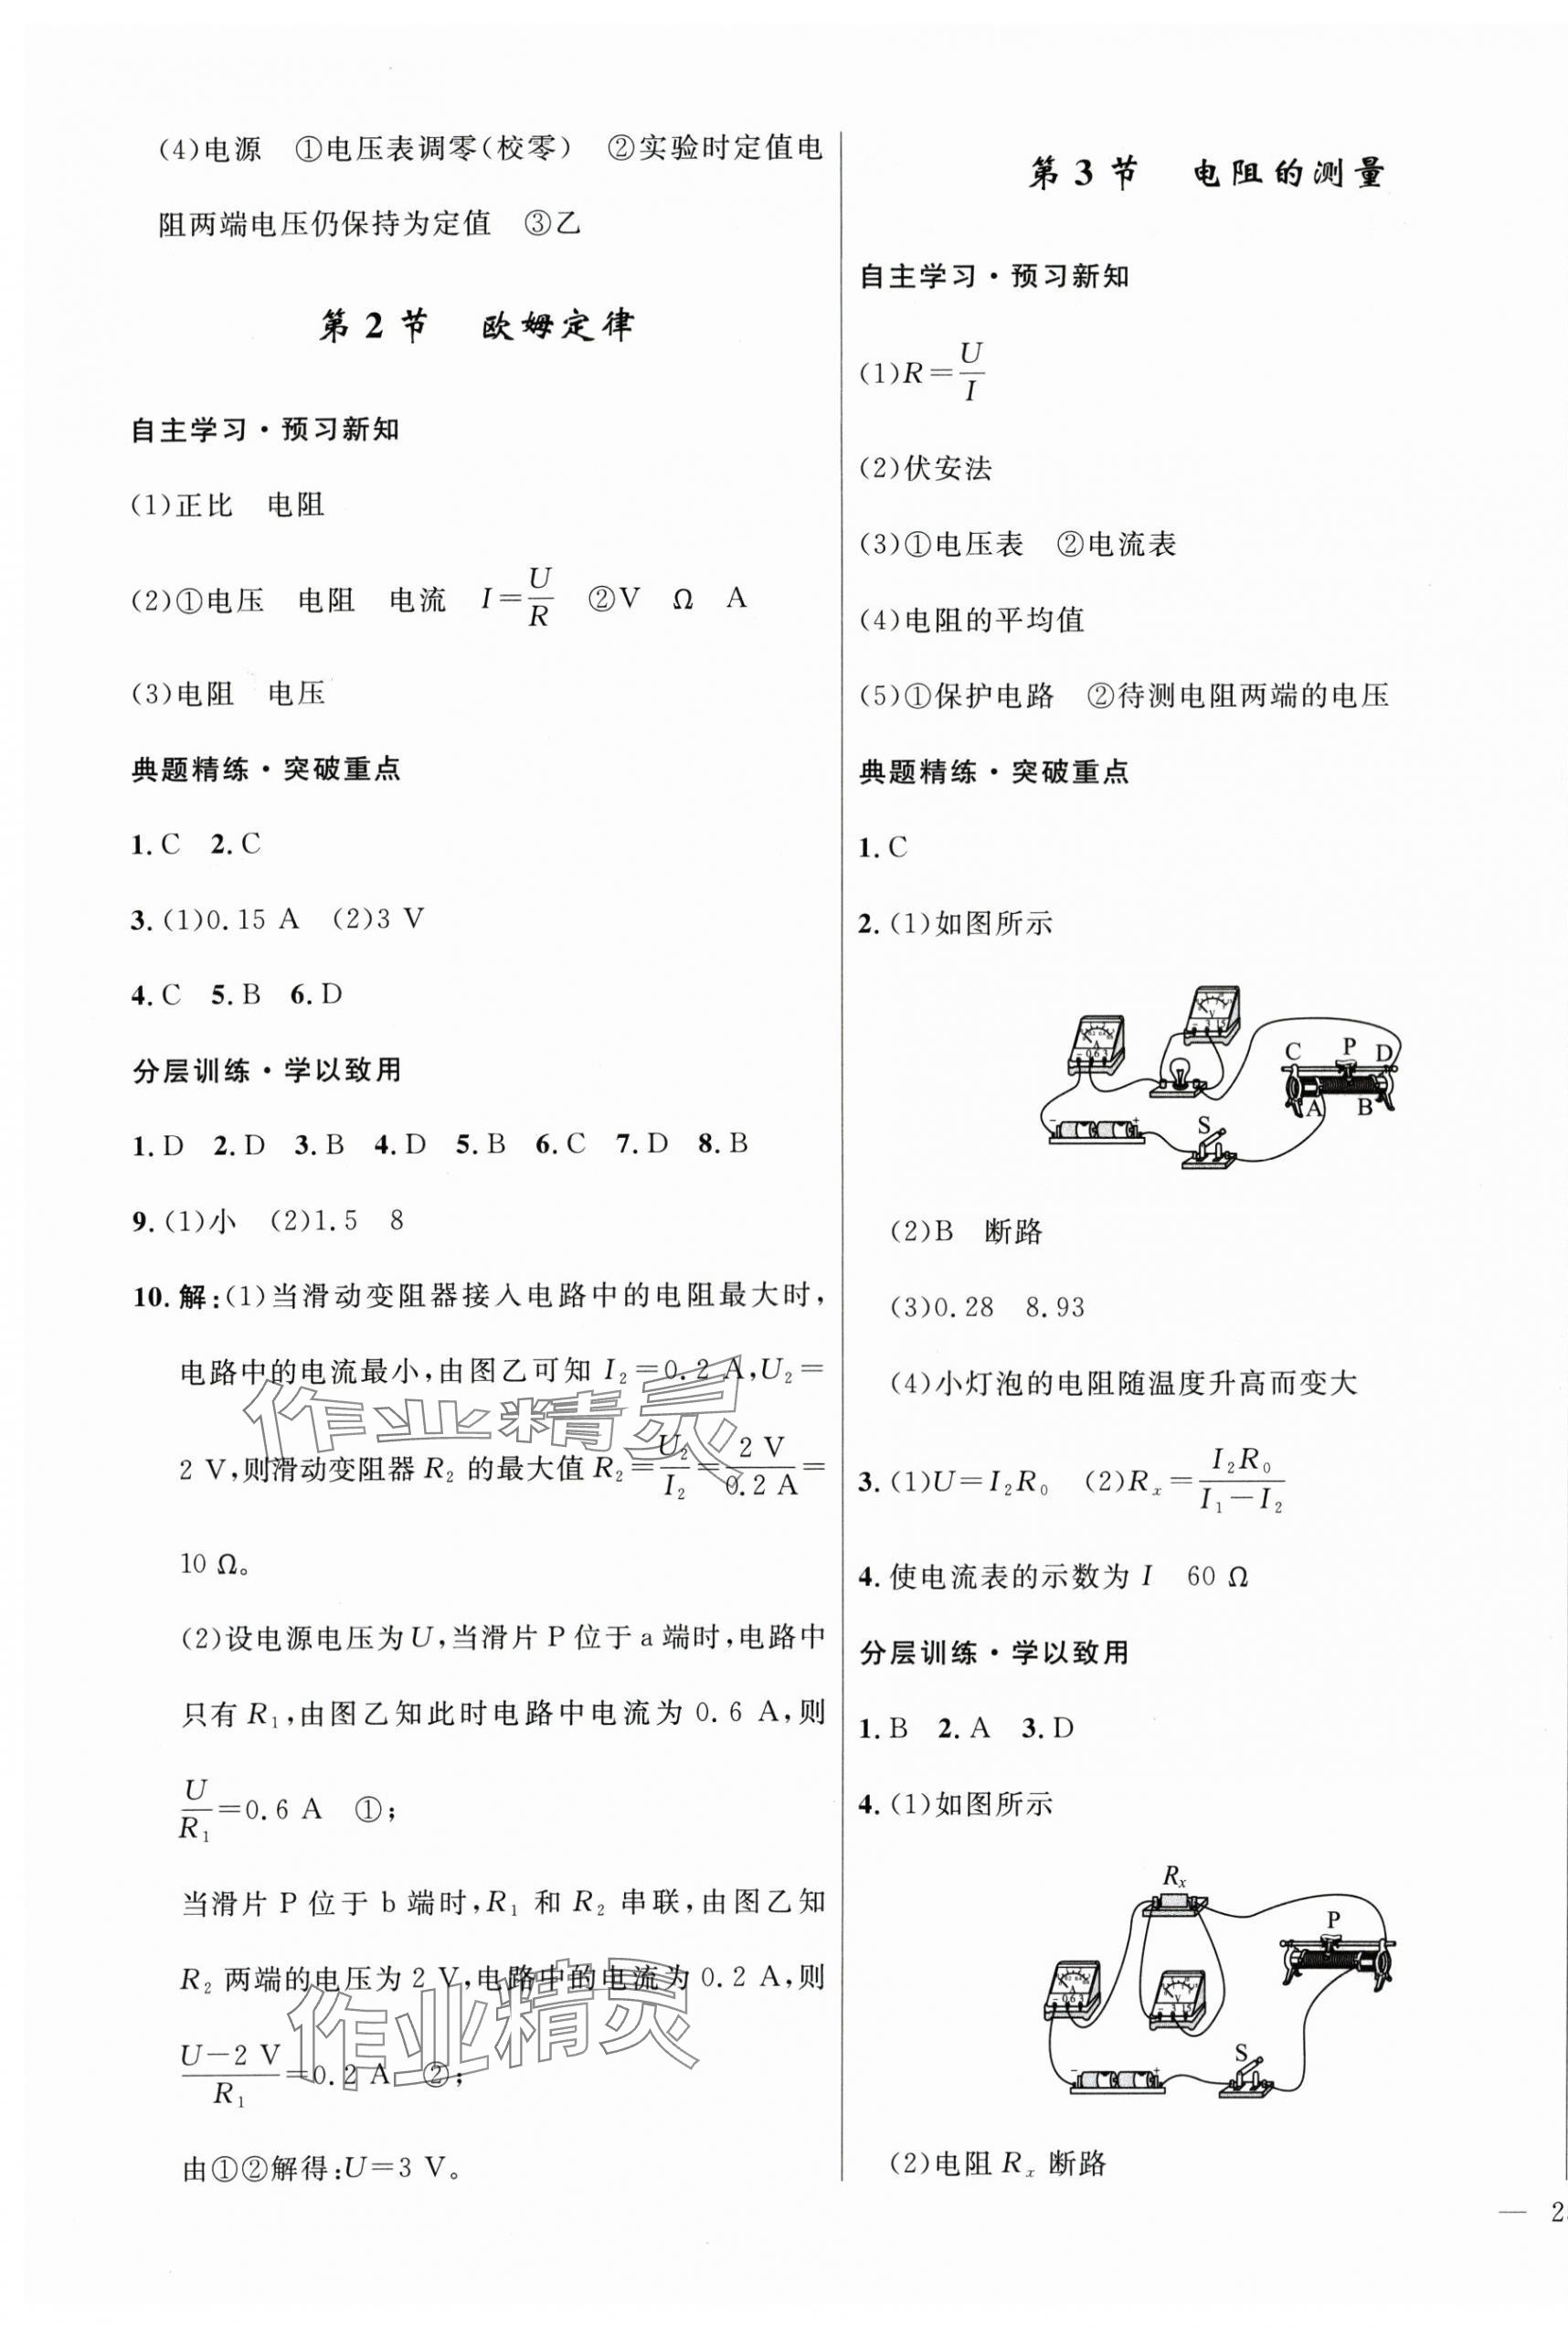 (4)电源　①电压表调零(校零)　②实验时定值电
阻两端电压仍保持为定值　③乙
第2节　欧姆定律
自主学习·预习新知
(1)正比　电阻
(2)①电压　电阻　电流　I=U/R　②V　Ω　A
(3)电阻　电压
典题精练·突破重点
1.C　2.C
3.(1)0.15 A　(2)3 V
4.C　5.B　6.D
分层训练·学以致用
1.D　2.D　3.B　4.D　5.B　6.C　7.D　8.B
9.(1)小　(2)1.5　8
10.解:(1)当滑动变阻器接入电路中的电阻最大时,
电路中的电流最小,由图乙可知 I₂=0.2 A,U₂=
2 V,则滑动变阻器 R₂ 的最大值 R₂=U₂/I₂=2 V/0.2 A=
10 Ω。
(2)设电源电压为U,当滑片P位于a端时,电路中
只有 R₁,由图乙知此时电路中电流为 0.6 A,则
U/R₁=0.6 A　①;
当滑片 P 位于 b 端时,R₁ 和 R₂ 串联,由图乙知
R₂ 两端的电压为 2 V,电路中的电流为 0.2 A,则
(U-2 V)/R₁=0.2 A　②;
由①②解得:U=3 V。
第3节　电阻的测量
自主学习·预习新知
(1)R=U/I
(2)伏安法
(3)①电压表　②电流表
(4)电阻的平均值
(5)①保护电路　②待测电阻两端的电压
典题精练·突破重点
1.C
2.(1)如图所示
V
- 3 15
A
- 0.6 3
C P D
A B
- +
S
(2)B　断路
(3)0.28　8.93
(4)小灯泡的电阻随温度升高而变大
3.(1)U=I₂R₀　(2)Rₓ=I₂R₀/(I₁-I₂)
4.使电流表的示数为 I　60 Ω
分层训练·学以致用
1.B　2.A　3.D
4.(1)如图所示
Rₓ
P
A
- 0.6 3
V
- 3 15
- +
S
(2)电阻 Rₓ 断路
— 2
作业精灵
作业精灵